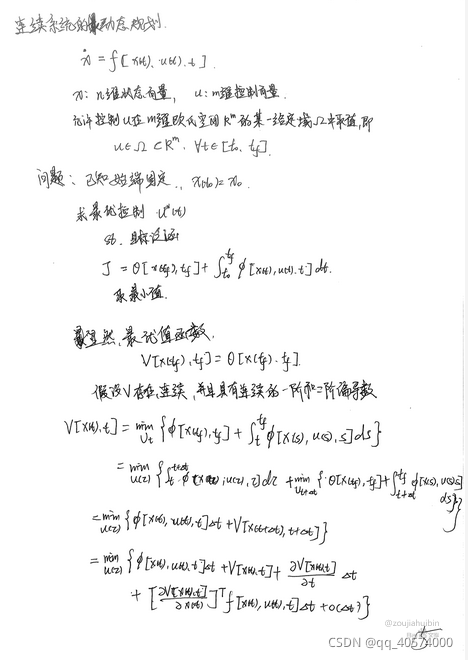 连续系统的动态规划.
ẋ = f[x(t), u(t), t].
x: n维状态向量, u: m维控制向量.
允许控制u在m维欧氏空间R^m的某一给定域Ω中取值,即
u∈Ω⊂R^m. ∀t∈[t₀, t_f].
问题: 已知始端固定., x(t₀)=x₀.
求最优控制 u*(t)
st. 目标泛函
J = θ[x(t_f), t_f] + ∫_{t₀}^{t_f} φ[x(t), u(t), t] dt.
取最小值.
显然,最优值函数.
V[x(t_f), t_f] = θ[x(t_f), t_f].
假设V存在,连续,并且具有连续的一阶和二阶偏导数
V[x(t), t] = min_{u_t} {φ[x(t_f), t_f] + ∫_t^{t_f} φ[x(s), u(s), s] ds}
= min_{u(τ)} {∫_t^{t+Δt} φ(x(τ), u(τ), τ] dτ + min_{u_{t+Δt}} {θ[x(t_f), t_f] + ∫_{t+Δt}^{t_f} φ[x(s), u(s), s] ds}}
= min_{u(τ)} {φ[x(t), u(t), t]Δt + V[x(t+Δt), t+Δt]}
= min_{u(τ)} {φ[x(t), u(t), t]Δt + V[x(t), t] + ∂V[x(t), t]/∂t Δt
+ [∂V[x(t), t]/∂x(t)]^T f[x(t), u(t), t]Δt + o(Δt)}
@zoujiahuibin
CSDN @qq_40574000